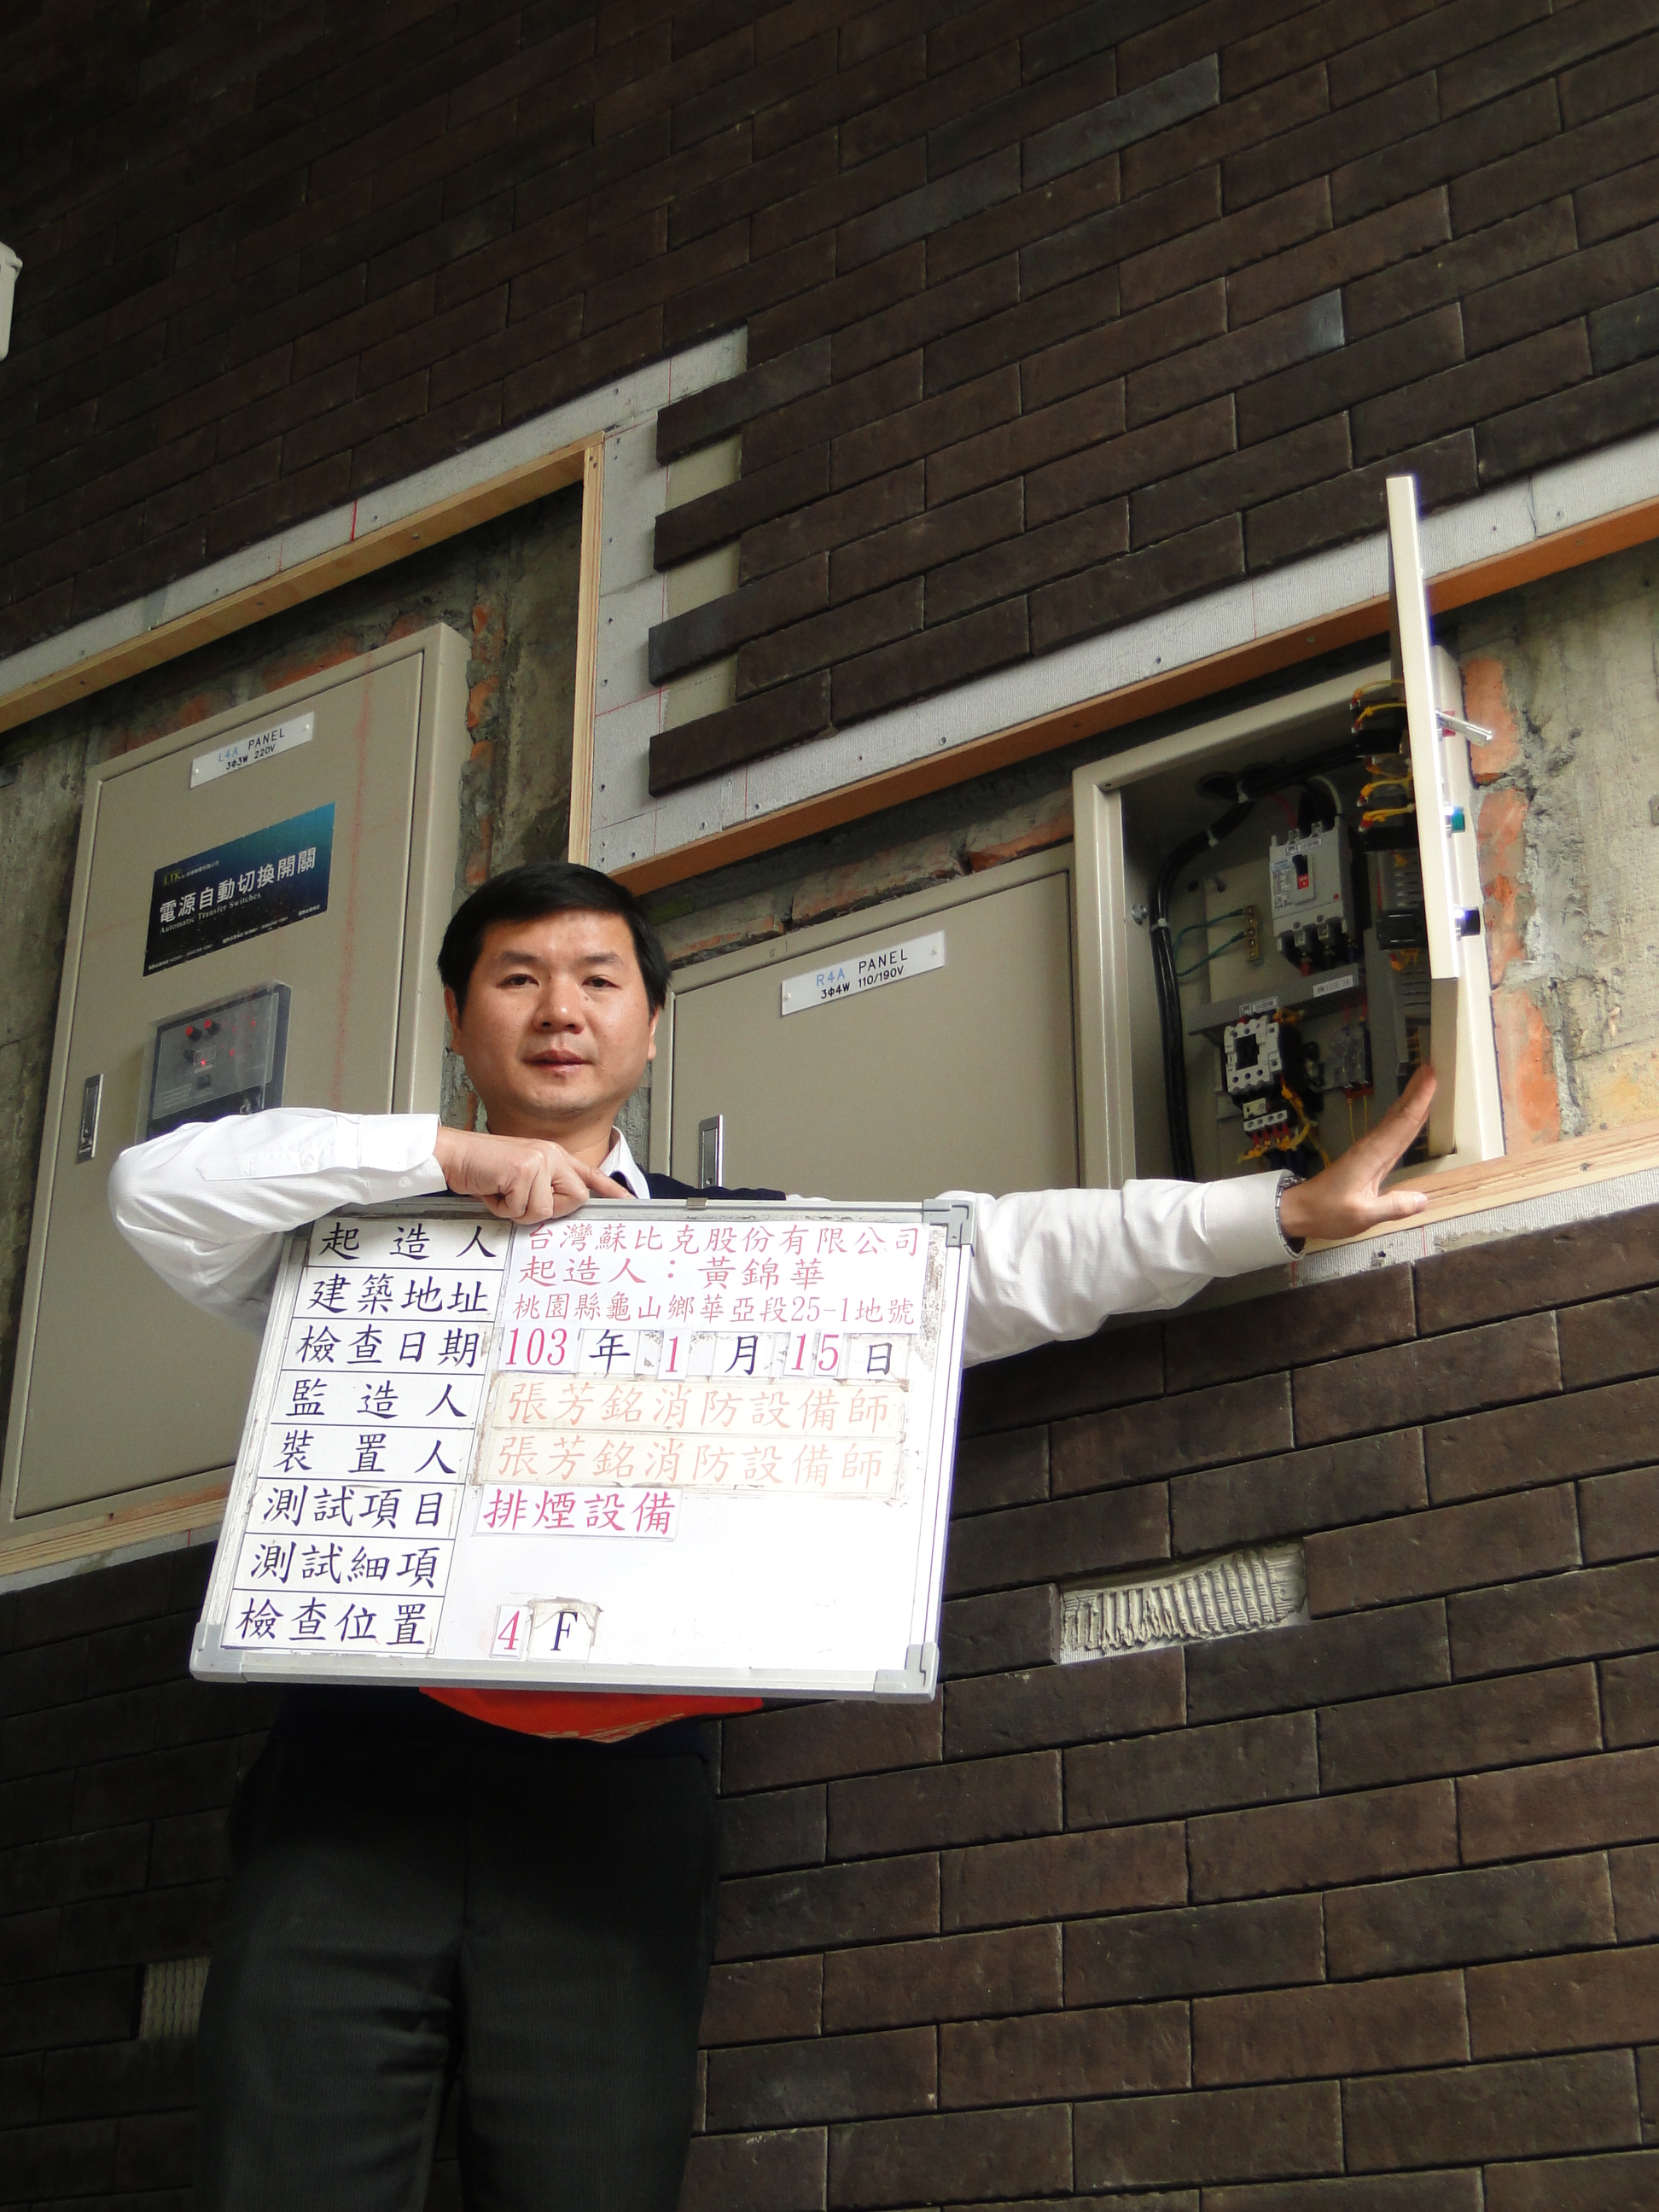 L4A PANEL
3Φ3W 220V
LTK
電源自動切換開關
Automatic Transfer Switches
R4A PANEL
3Φ4W 110/190V
起造人 台灣蘇比克股份有限公司
起造人：黃錦華
建築地址 桃園縣龜山鄉華亞段25-1地號
檢查日期 103年1月15日
監造人 張芳銘消防設備師
裝置人 張芳銘消防設備師
測試項目 排煙設備
測試細項
檢查位置 4F